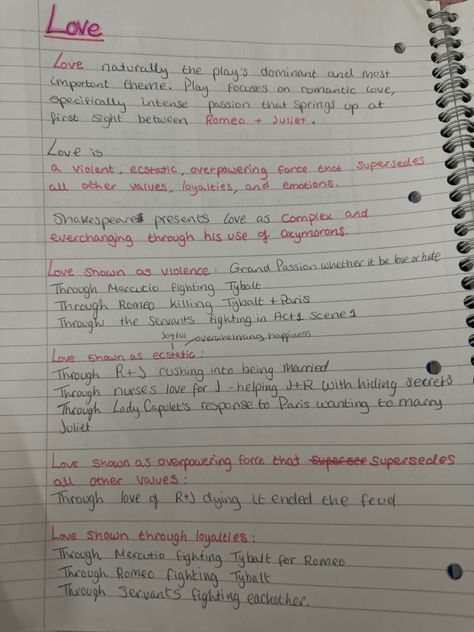 Love
Love naturally the play's dominant and most
important theme. Play focuses on romantic love,
specifically intense passion that springs up at
first sight between Romeo + Juliet.
Love is
a violent, ecstatic, overpowering force that supersedes
all other values, loyalties, and emotions.
Shakespeare presents love as complex and
everchanging through his use of oxymorons.
Love shown as violence: Grand Passion whether it be love or hate
Through Mercutio fighting Tybalt
Through Romeo killing Tybalt + Paris
Through the servants fighting in Act 1 scene 1
Joyful overwhelming happiness
Love shown as ecstatic:
Through R+J rushing into being married
Through nurses love for J - helping J+R with hiding secrets
Through Lady Capulet's response to Paris wanting to marry
Juliet
Love shown as overpowering force that supersee supersedes
all other values:
Through love of R+J dying it ended the feud
Love shown through loyalties:
Through Mercutio fighting Tybalt for Romeo
Through Romeo fighting Tybalt
Through Servants fighting eachother.